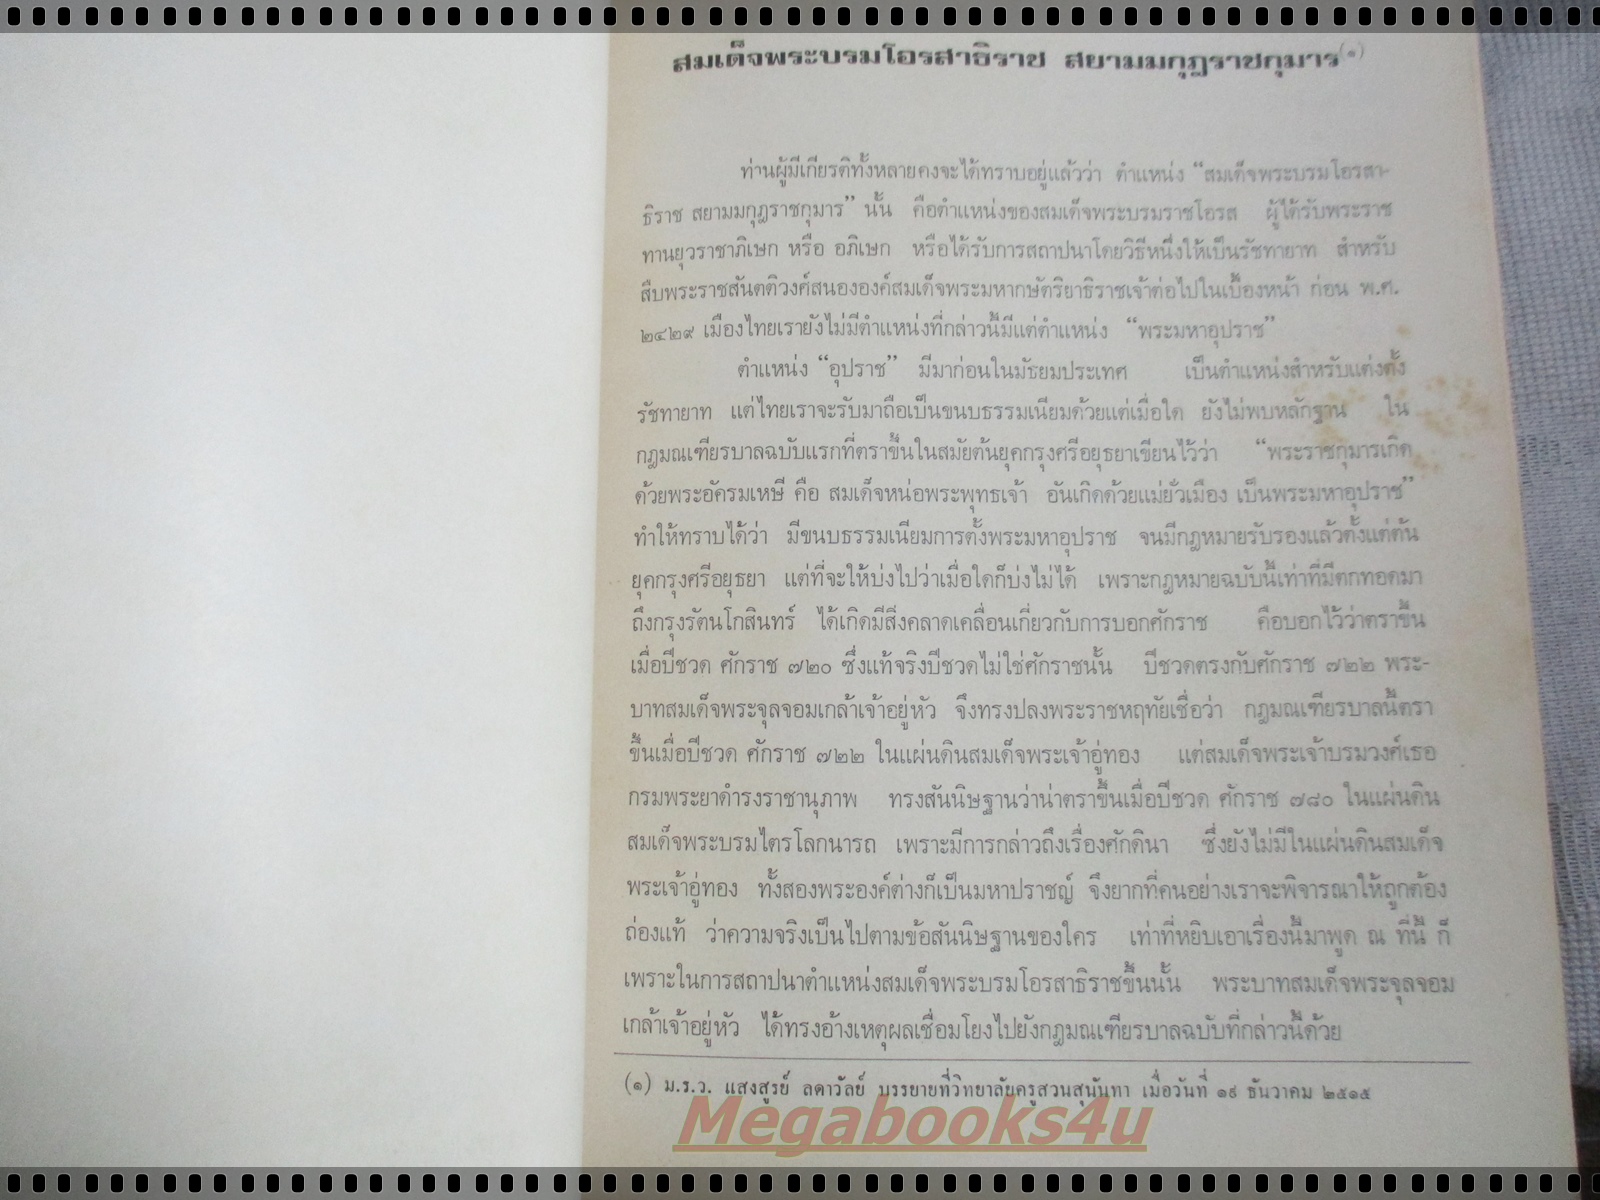 สมเด็จพระบรมโอรสาธิราช สยามมกุฎราชกุมาร(๑)
ท่านผู้มีเกียรติทั้งหลายคงจะได้ทราบอยู่แล้วว่า ตำแหน่ง “สมเด็จพระบรมโอรสา-
ธิราช สยามมกุฎราชกุมาร” นั้น คือตำแหน่งของสมเด็จพระบรมราชโอรส ผู้ได้รับพระราช
ทานยุวราชาภิเษก หรือ อภิเษก หรือได้รับการสถาปนาโดยวิธีหนึ่งให้เป็นรัชทายาท สำหรับ
สืบพระราชสันตติวงศ์สนององค์สมเด็จพระมหากษัตริยาธิราชเจ้าต่อไปในเบื้องหน้า ก่อน พ.ศ.
๒๔๒๙ เมืองไทยเรายังไม่มีตำแหน่งที่กล่าวนี้มีแต่ตำแหน่ง “พระมหาอุปราช”
ตำแหน่ง “อุปราช” มีมาก่อนในมัธยมประเทศ เป็นตำแหน่งสำหรับแต่งตั้ง
รัชทายาท แต่ไทยเราจะรับมาถือเป็นขนบธรรมเนียมด้วยแต่เมื่อใด ยังไม่พบหลักฐาน ใน
กฎมณเฑียรบาลฉบับแรกที่ตราขึ้นในสมัยต้นยุคกรุงศรีอยุธยาเขียนไว้ว่า “พระราชกุมารเกิด
ด้วยพระอัครมเหษี คือ สมเด็จหน่อพระพุทธเจ้า อันเกิดด้วยแม่ยั่วเมือง เป็นพระมหาอุปราช”
ทำให้ทราบได้ว่า มีขนบธรรมเนียมการตั้งพระมหาอุปราช จนมีกฎหมายรับรองแล้วตั้งแต่ต้น
ยุคกรุงศรีอยุธยา แต่ที่จะให้บ่งไปว่าเมื่อใดก็บ่งไม่ได้ เพราะกฎหมายฉบับนี้เท่าที่มีตกทอดมา
ถึงกรุงรัตนโกสินทร์ ได้เกิดมีสิ่งคลาดเคลื่อนเกี่ยวกับการบอกศักราช คือบอกไว้ว่าตราขึ้น
เมื่อปีชวด ศักราช ๗๒๐ ซึ่งแท้จริงปีชวดไม่ใช่ศักราชนั้น ปีชวดตรงกับศักราช ๗๒๒ พระ-
บาทสมเด็จพระจุลจอมเกล้าเจ้าอยู่หัว จึงทรงปลงพระราชหฤทัยเชื่อว่า กฎมณเฑียรบาลนี้ตรา
ขึ้นเมื่อปีชวด ศักราช ๗๒๒ ในแผ่นดินสมเด็จพระเจ้าอู่ทอง แต่สมเด็จพระเจ้าบรมวงศ์เธอ
กรมพระยาดำรงราชานุภาพ ทรงสันนิษฐานว่าน่าตราขึ้นเมื่อปีชวด ศักราช ๗๘๐ ในแผ่นดิน
สมเด็จพระบรมไตรโลกนารถ เพราะมีการกล่าวถึงเรื่องศักดินา ซึ่งยังไม่มีในแผ่นดินสมเด็จ
พระเจ้าอู่ทอง ทั้งสองพระองค์ต่างก็เป็นมหาปราชญ์ จึงยากที่คนอย่างเราจะพิจารณาให้ถูกต้อง
ถ่องแท้ ว่าความจริงเป็นไปตามข้อสันนิษฐานของใคร เท่าที่หยิบเอาเรื่องนี้มาพูด ณ ที่นี้ ก็
เพราะในการสถาปนาตำแหน่งสมเด็จพระบรมโอรสาธิราชขึ้นนั้น พระบาทสมเด็จพระจุลจอม
เกล้าเจ้าอยู่หัว ได้ทรงอ้างเหตุผลเชื่อมโยงไปยังกฎมณเฑียรบาลฉบับที่กล่าวนี้ด้วย
(๑) ม.ร.ว. แสงสูรย์ ลดาวัลย์ บรรยายที่วิทยาลัยครูสวนสุนันทา เมื่อวันที่ ๑๙ ธันวาคม ๒๕๑๕
Megabooks4u